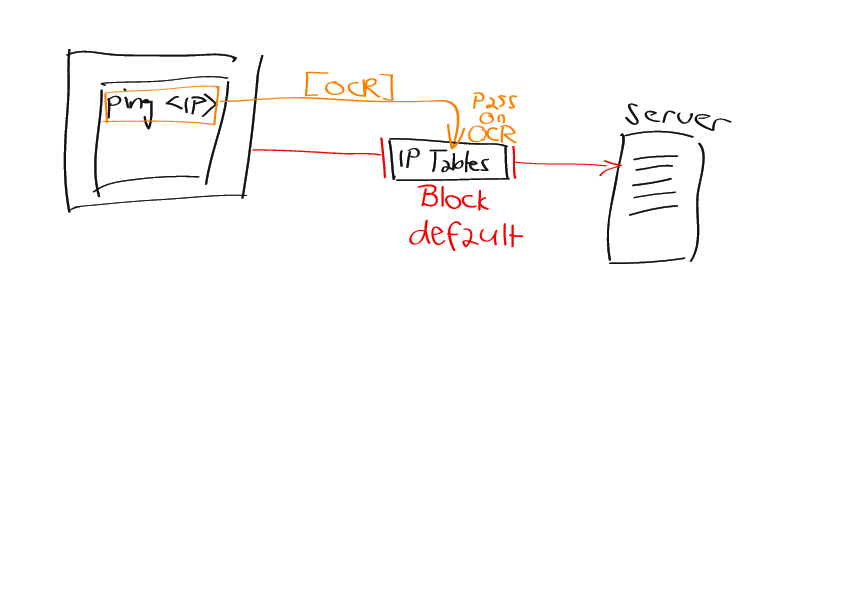 ping <IP>
[OCR]
Pass
on
OCR
IP Tables
Block
default
Server